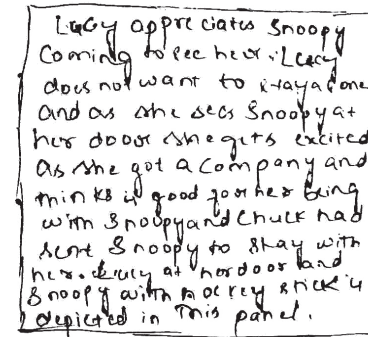 Lucy appreciates Snoopy
Coming to see her. Lucy
does not want to stay alone
and as she sees Snoopy at
her door she gets excited
as she got a Company and
thinks is good for her being
with Snoopy and Chuck had
sent Snoopy to stay with
her. Lucy at her door and
Snoopy with hockey stick is
depicted in This panel.